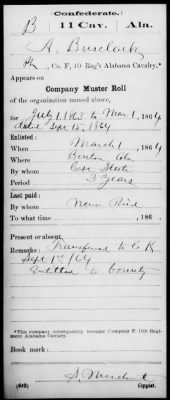 Confederate.
B 11 Cav. Ala.
A. Busclark
Pt, Co. F, 10 Reg't Alabama Cavalry.*
Appears on
Company Muster Roll
of the organization named above,
for July 1, 1863 to Mar 1, 1864
dated Sept 15, 1864
Enlisted:
When March 1, 1864
Where Ala.
By whom Capt
Period 3 years
Last paid:
By whom Never Paid
To what time , 186 .
Present or absent
Remarks: Transferred to Co K
Sept 1st /64
Entitled to bounty
*This company subsequently became Company F, 11th Regiment Alabama Cavalry.
Book mark:
(642) Copyist.